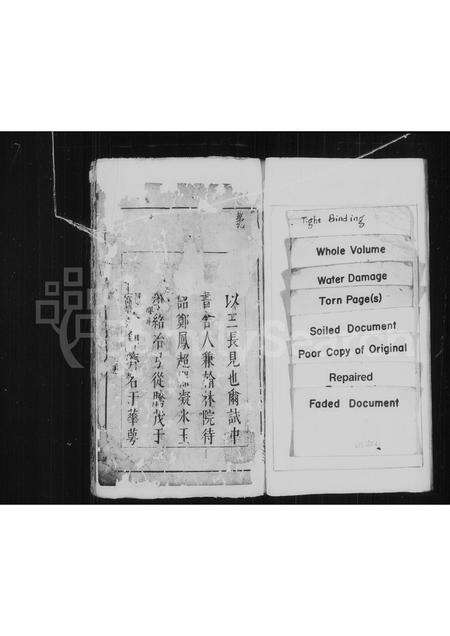 Tight Binding
Whole Volume
Water Damage
Torn Page(s)
Soiled Document
Poor Copy of Original
Repaired
Faded Document
以三長見也爾試中
書舍人兼翰林院待
詔鄭鳳超凝氷玉
緒冶弓從騰茂于
名于華萼